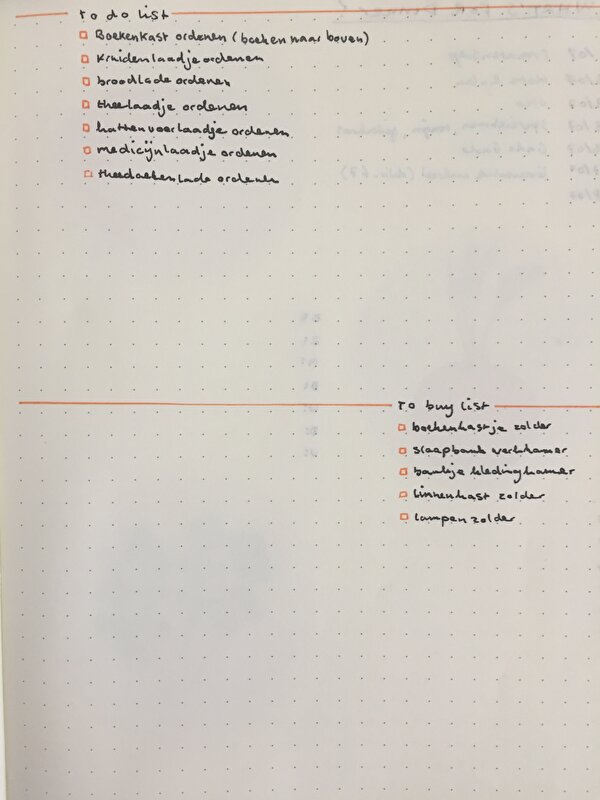 To do list
Boekenkast ordenen (boeken naar boven)
kruidenlaadje ordenen
broodlade ordenen
theelaadje ordenen
kattenvoerlaadje ordenen
medicijnlaadje ordenen
theedoekenlade ordenen
To buy list
boekenkastje zolder
slaapbank werkkamer
bankje kledingkamer
linnenkast zolder
lampen zolder